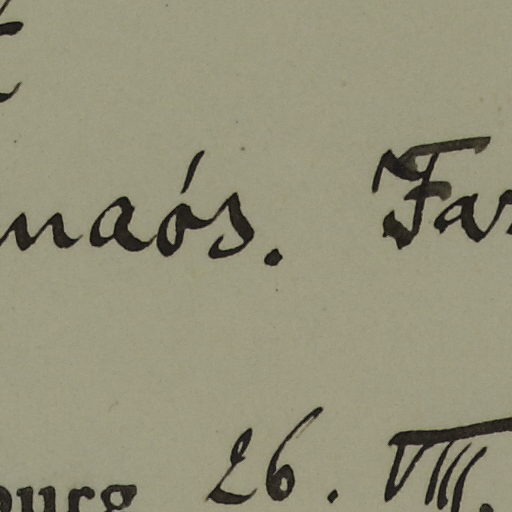 naós. Far
bourg 26. VIII.